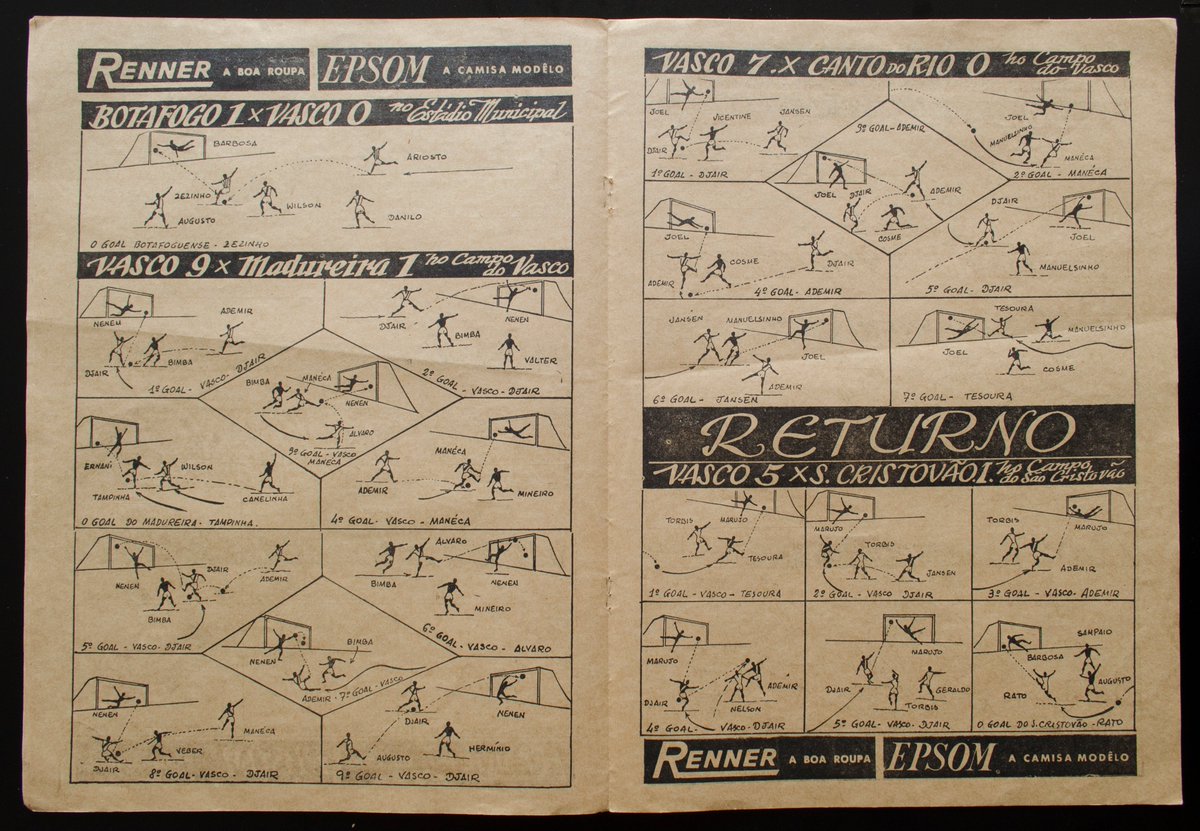 RENNER A BOA ROUPA EPSOM A CAMISA MODÊLO
BOTAFOGO 1 X VASCO 0 no Estádio Municipal
BARBOSA
ARIOSTO
ZEZINHO
WILSON
AUGUSTO
DANILO
O GOAL BOTAFOGUENSE - ZEZINHO
VASCO 9 X Madureira 1 no Campo do Vasco
NENEM
ADEMIR
DJAIR
BIMBA
1º GOAL - VASCO - DJAIR
DJAIR
BIMBA
NENEN
VALTER
2º GOAL - VASCO - DJAIR
BIMBA
MANÉCA
NENEN
ALVARO
3º GOAL - VASCO
MANECA
ERNANI
WILSON
TAMPINHA
CANELINHA
O GOAL DO MADUREIRA - TAMPINHA.
MANÉCA
NENEN
ADEMIR
MINEIRO
4º GOAL - VASCO - MANÉCA
NENEN
DJAIR
ADEMIR
BIMBA
5º GOAL - VASCO - DJAIR
ALVARO
BIMBA
NENEN
MINEIRO
6º GOAL - VASCO - ALVARO
NENEN
BIMBA
ADEMIR - 7º GOAL - VASCO
NENEN
MANÉCA
VEBER
DJAIR
8º GOAL - VASCO - DJAIR
DJAIR
NENEN
AUGUSTO
HERMÍNIO
9º GOAL - VASCO - DJAIR
VASCO 7. X CANTO DO RIO 0 no Campo do Vasco
JOEL
VICENTINE
JANSEN
DJAIR
1º GOAL - DJAIR
3º GOAL - ADEMIR
JOEL
DJAIR
ADEMIR
COSME
JOEL
MANUELSINHO
MANÉCA
2º GOAL - MANÉCA
JOEL
COSME
DJAIR
ADEMIR
4º GOAL - ADEMIR
DJAIR
JOEL
MANUELSINHO
5º GOAL - DJAIR
JANSEN
MANUELSINHO
JOEL
ADEMIR
6º GOAL - JANSEN
TESOURA
MANUELSINHO
JOEL
COSME
7º GOAL - TESOURA
RETURNO
VASCO 5 X S. CRISTOVÃO. 1. no Campo do São Cristovão
TORBIS
MARUJO
TESOURA
1º GOAL - VASCO - TESOURA
MARUJO
TORBIS
JANSEN
2º GOAL - VASCO DJAIR
TORBIS
MARUJO
ADEMIR
3º GOAL - VASCO - ADEMIR
MARUJO
DJAIR
ADEMIR
NELSON
4º GOAL - VASCO - DJAIR
MARUJO
DJAIR
GERALDO
TORBIS
5º GOAL - VASCO - DJAIR
SAMPAIO
BARBOSA
AUGUSTO
RATO
O GOAL DO S. CRISTOVÃO - RATO
RENNER A BOA ROUPA EPSOM A CAMISA MODÊLO